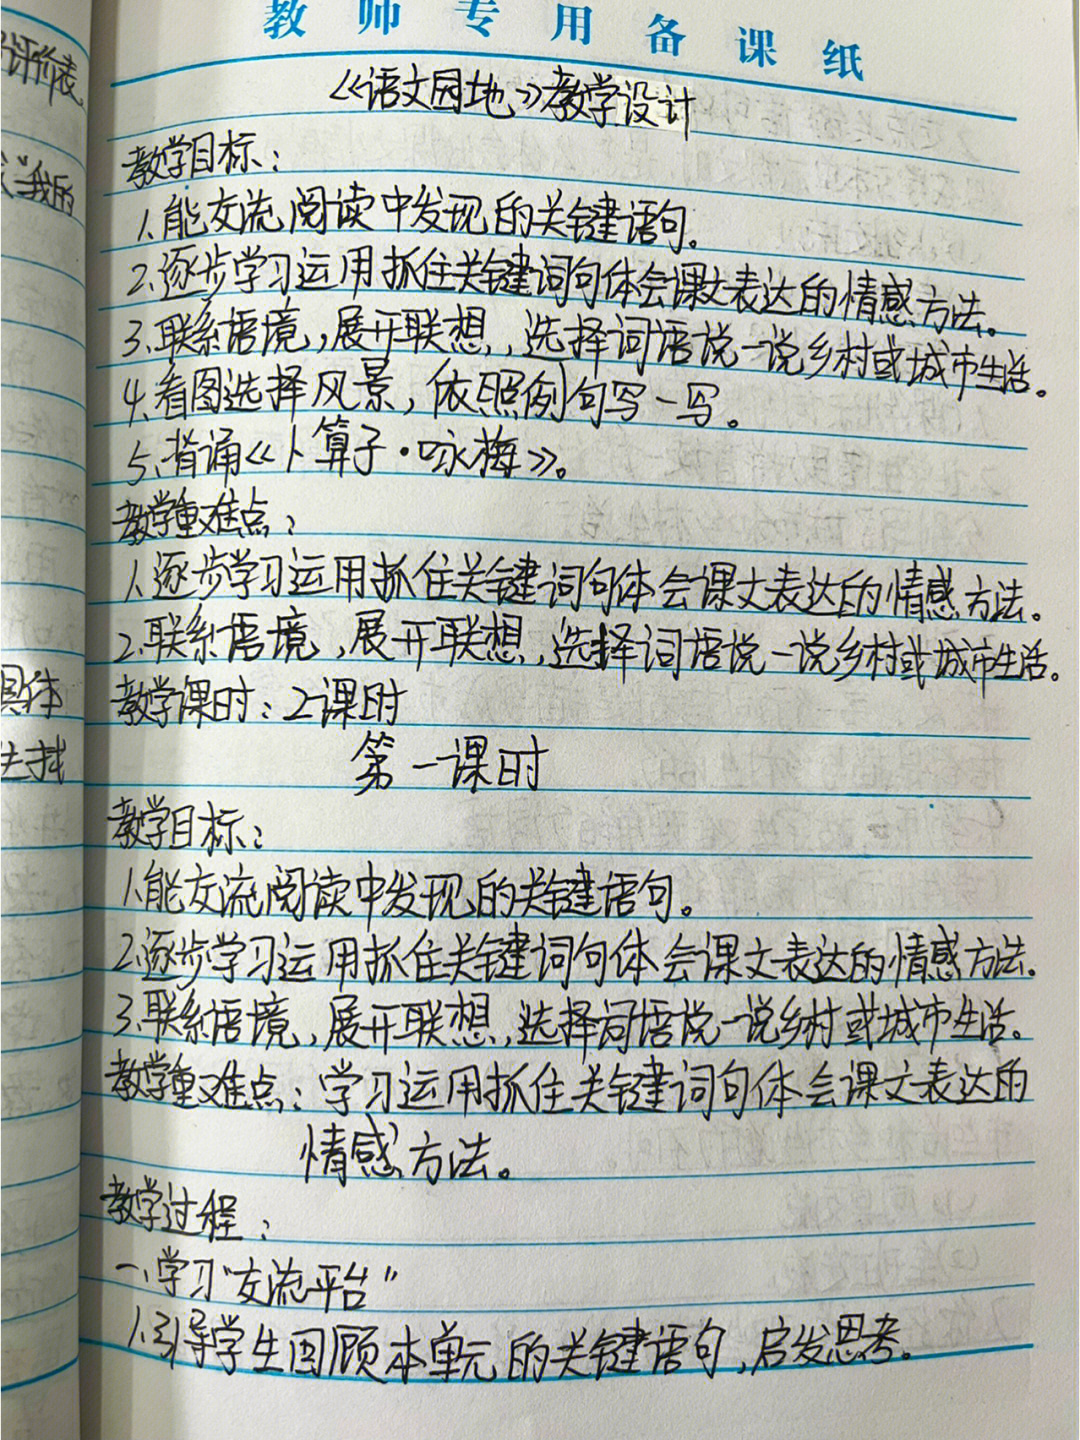 教师专用备课纸
《语文园地》教学设计
教学目标：
1.能交流阅读中发现的关键语句。
2.逐步学习运用抓住关键词句体会课文表达的情感方法。
3.联系语境，展开联想，选择词语说一说乡村或城市生活。
4.看图选择风景，依照例句写一写。
5.背诵《卜算子·咏梅》。
教学重难点：
1.逐步学习运用抓住关键词句体会课文表达的情感方法。
2.联系语境，展开联想，选择词语说一说乡村或城市生活。
教学课时：2课时
第一课时
教学目标：
1.能交流阅读中发现的关键语句。
2.逐步学习运用抓住关键词句体会课文表达的情感方法。
3.联系语境，展开联想，选择词语说一说乡村或城市生活。
教学重难点：学习运用抓住关键词句体会课文表达的
情感方法。
教学过程：
一、学习“交流平台”
1.引导学生回顾本单元的关键语句，启发思考。